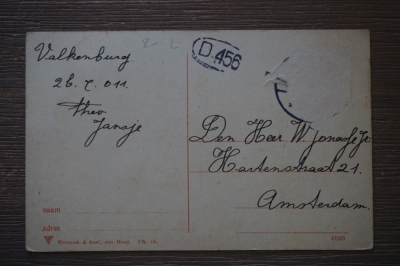 Valkenburg
26.7.011.
Theo
Jansje
D.456
Den Heer W Jonas Jr
Hartenstraat 21.
Amsterdam.
naam
adres
Weenenk & Snel, den Haag